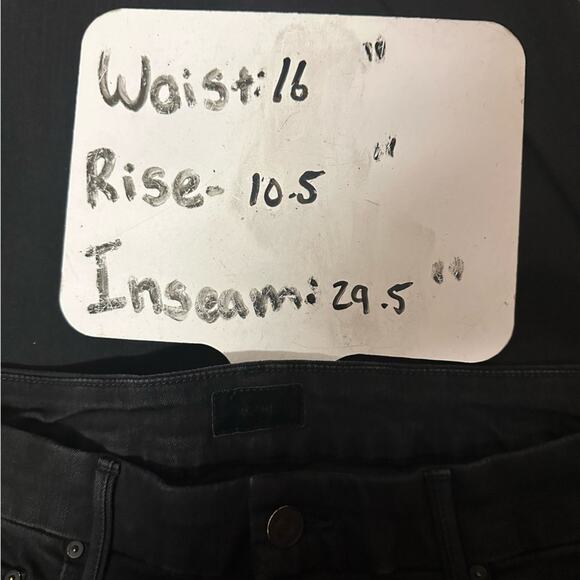 Waist: 16 "
Rise- 10.5 "
Inseam: 29.5 "